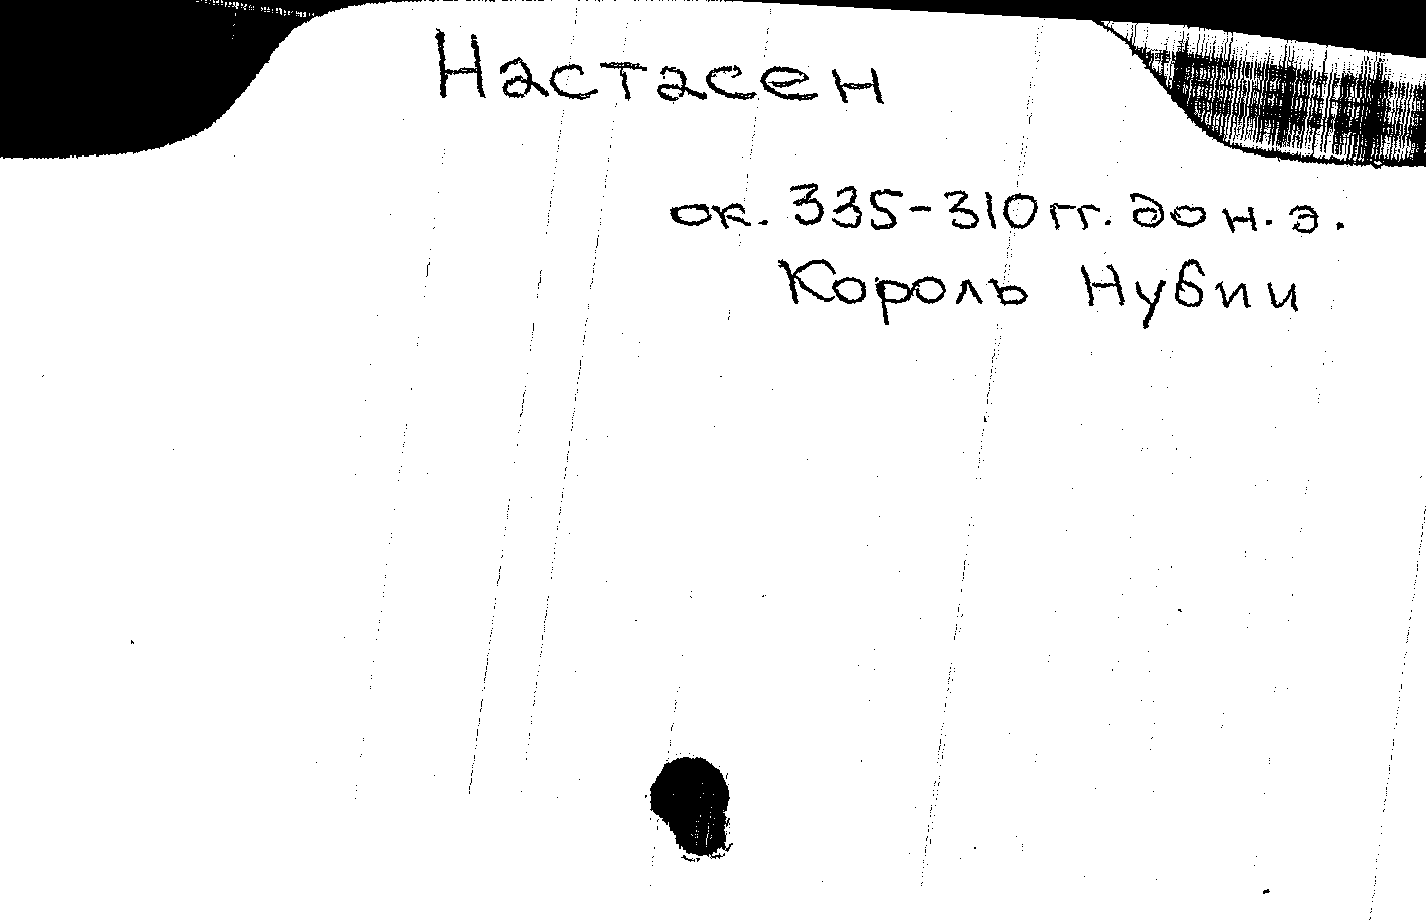 Настасен
ок. 335-310 гг. до н. э.
Король Нубии